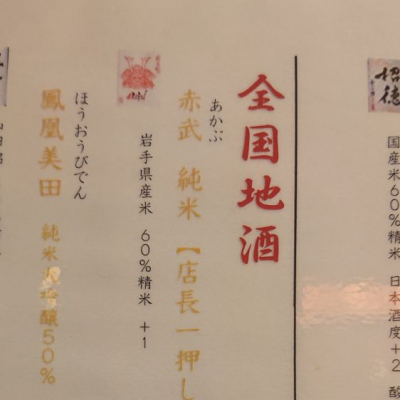 招徳
国産米60%精米 日本酒度+2
全国地酒
あかぶ
赤武 純米 【店長一押し
岩手県産米 60%精米 +1
ほうおうびでん
鳳凰美田 純米 吟醸50%